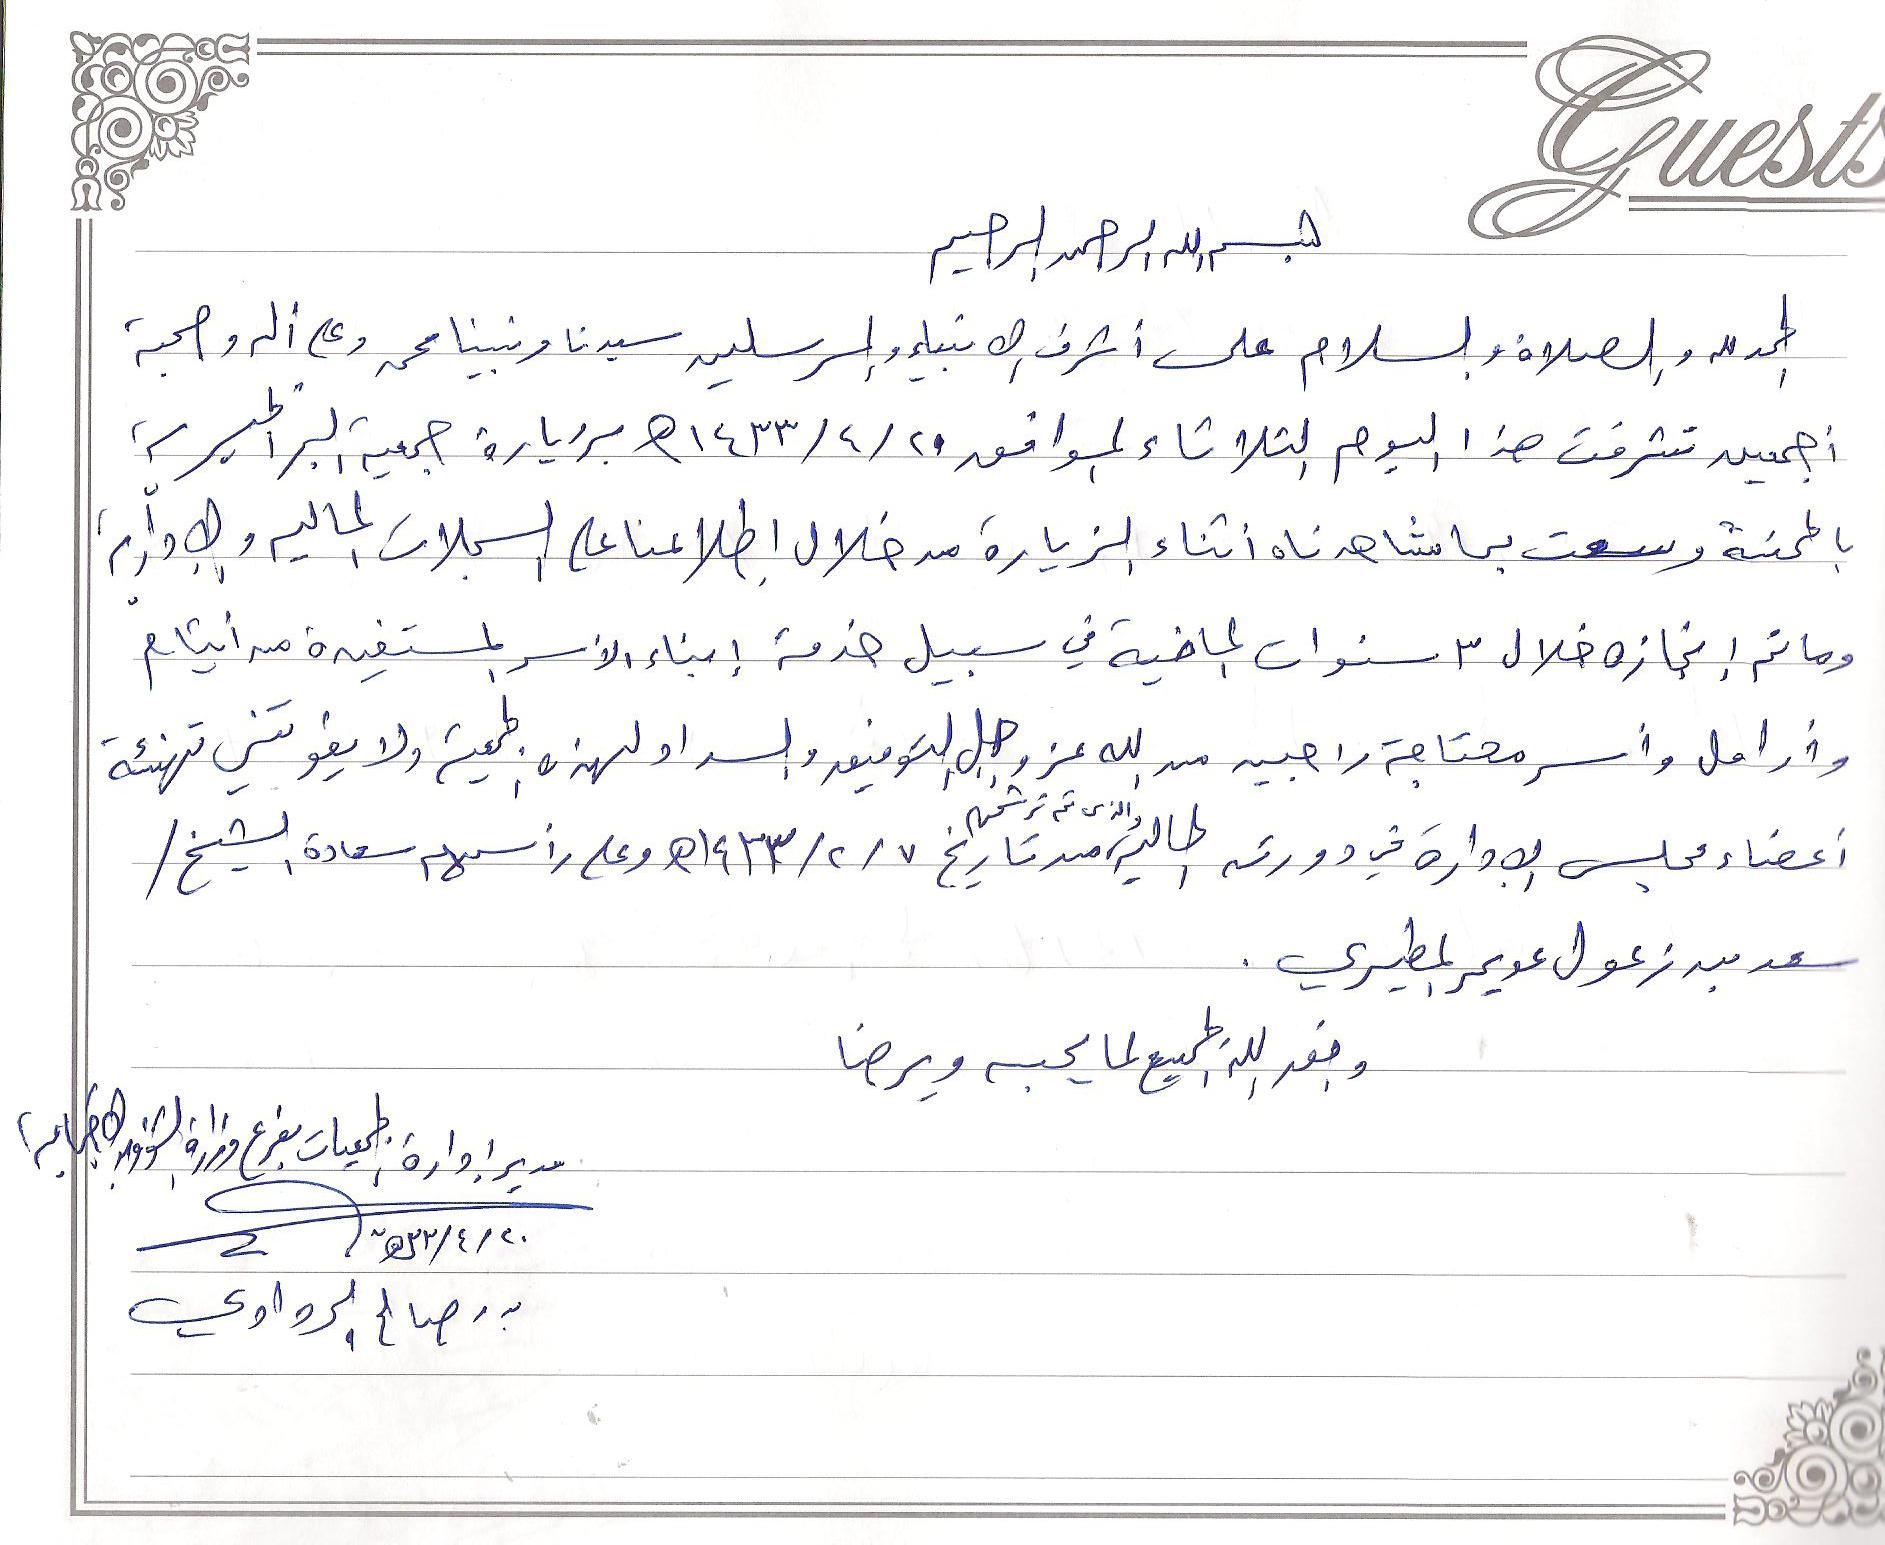 Guests
بسم الله الرحمن الرحيم
الحمد لله والصلاة والسلام على أشرف الانبياء والمرسلين سيدنا ونبينا محمد وعلى أله وصحبة
أجمعين تشرفت هذا اليوم الثلاثاء الموافق ٢٠/٤/١٤٣٣هـ بزيارة جمعية البر الخيرية
بالحفنة وسعت بما شاهدناه أثناء الزيارة من خلال إطلاعنا على السجلات المالية والإدارية
وما تم إنجازه خلال ٣ سنوات الماضية في سبيل خدمة إبناء الأسر المستفيدة من أيتام
وأرامل وأسر محتاجة راجين من الله عز وجل التوفيق والسداد لهذه الجمعية ولا يفوتني تهنئة
أعضاء مجلس الإدارة في دورته الحالية والذي تم ترشحهم من تاريخ ٧/٢/١٤٣٣هـ وعلى رأسهم سعادة الشيخ /
سعد بن زعول عويمر المطيري .
وفق الله الجميع لما يحبه ويرضا
مدير إدارة الجمعيات بفرع وزارة الشؤون الإجتماعية
٢٠/٤/٣٣هـ
بدر صالح الردادي